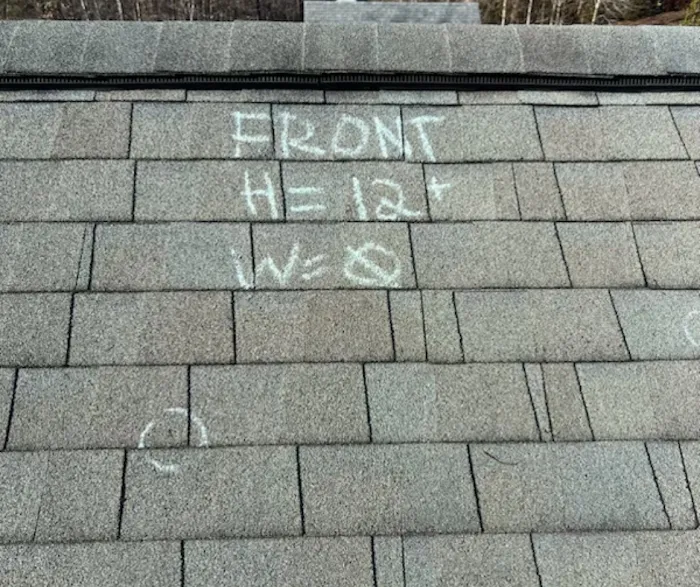 FRONT
H = 12+
W = Ø